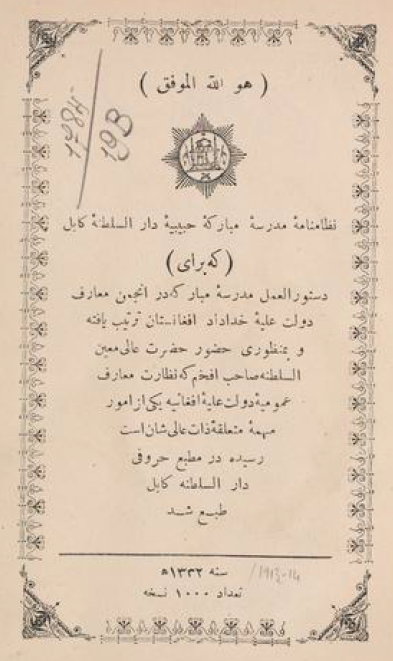 ( هو الله الموفق )
1984
19B
نظامنامهٔ مدرسهٔ مبارکهٔ حبیبیهٔ دار السلطنهٔ کابل
( که برای )
دستور العمل مدرسهٔ مبارکه در انجمن معارف
دولت علیهٔ خداداد افغانستان ترتیب یافته
و بمنظوری حضور حضرت عالی معین
السلطنه صاحب افخم که نظارت معارف
عمومیهٔ دولت علیهٔ افغانیه یکی از امور
مهمهٔ متعلقهٔ ذات عالی شان است
رسیده در مطبع حروفی
دار السلطنه کابل
طبع شد
سنه ۱۳۳۲ه /1913-14
تعداد ۱۰۰۰ نسخه